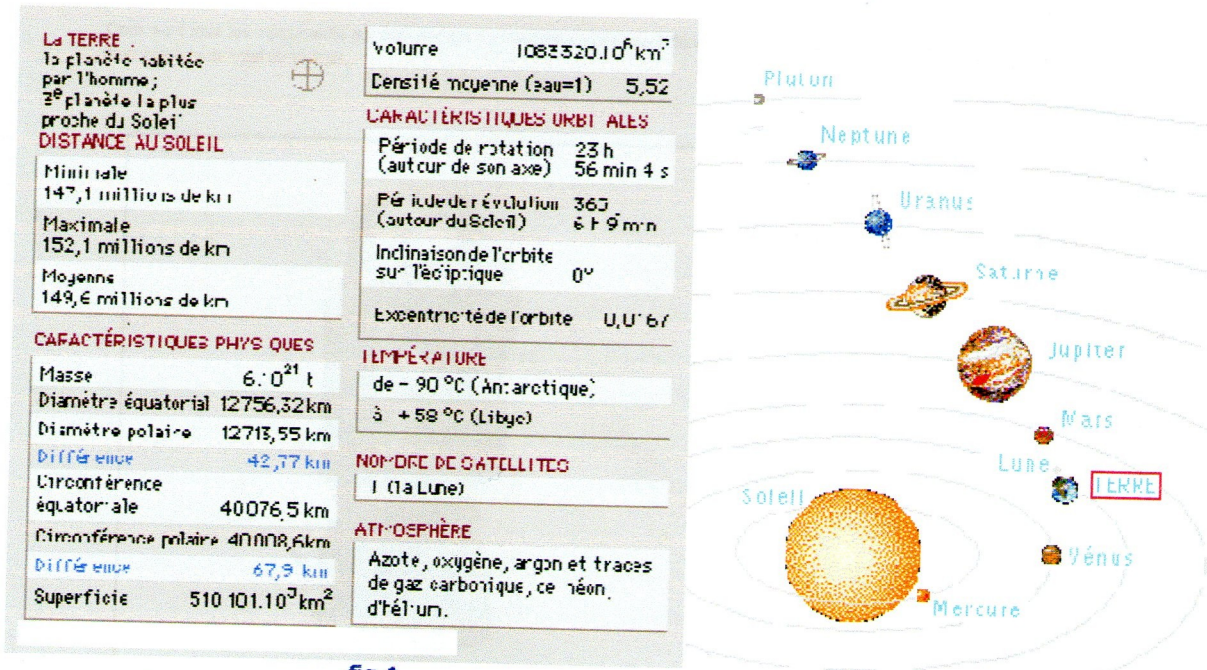 La TERRE :
la planète habitée
par l'homme;
3e planète la plus
proche du Soleil
DISTANCE AU SOLEIL
Minimale
147,1 millions de km
Maximale
152,1 millions de km
Moyenne
149,6 millions de km
CARACTÉRISTIQUES PHYSIQUES
Masse 6.10²¹ t
Diamètre équatorial 12756,32 km
Diamètre polaire 12713,55 km
Différence 42,77 km
Circonférence
équatoriale 40076,5 km
Circonférence polaire 40008,6 km
Différence 67,9 km
Superficie 510 101.10³ km²
Volume 1083320.10⁶ km³
Densité moyenne (eau=1) 5,52
CARACTÉRISTIQUES ORBITALES
Période de rotation 23 h
(autour de son axe) 56 min 4 s
Période de révolution 365
(autour du Soleil) 6 h 9 min
Inclinaison de l'orbite
sur l'écliptique 0°
Excentricité de l'orbite 0,0167
TEMPÉRATURE
de - 90 °C (Antarctique)
à + 58 °C (Libye)
NOMBRE DE SATELLITES
1 (la Lune)
ATMOSPHÈRE
Azote, oxygène, argon et traces
de gaz carbonique, de néon,
d'hélium.
Pluton
Neptune
Uranus
Saturne
Jupiter
Mars
Lune
TERRE
Soleil
Vénus
Mercure